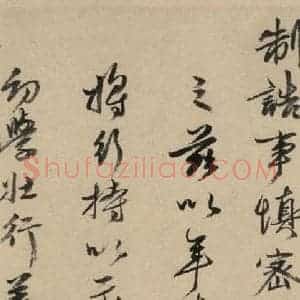 制誥事慎密
之茲以年
將行持以示
幼學壯行
Shufaziliao.com